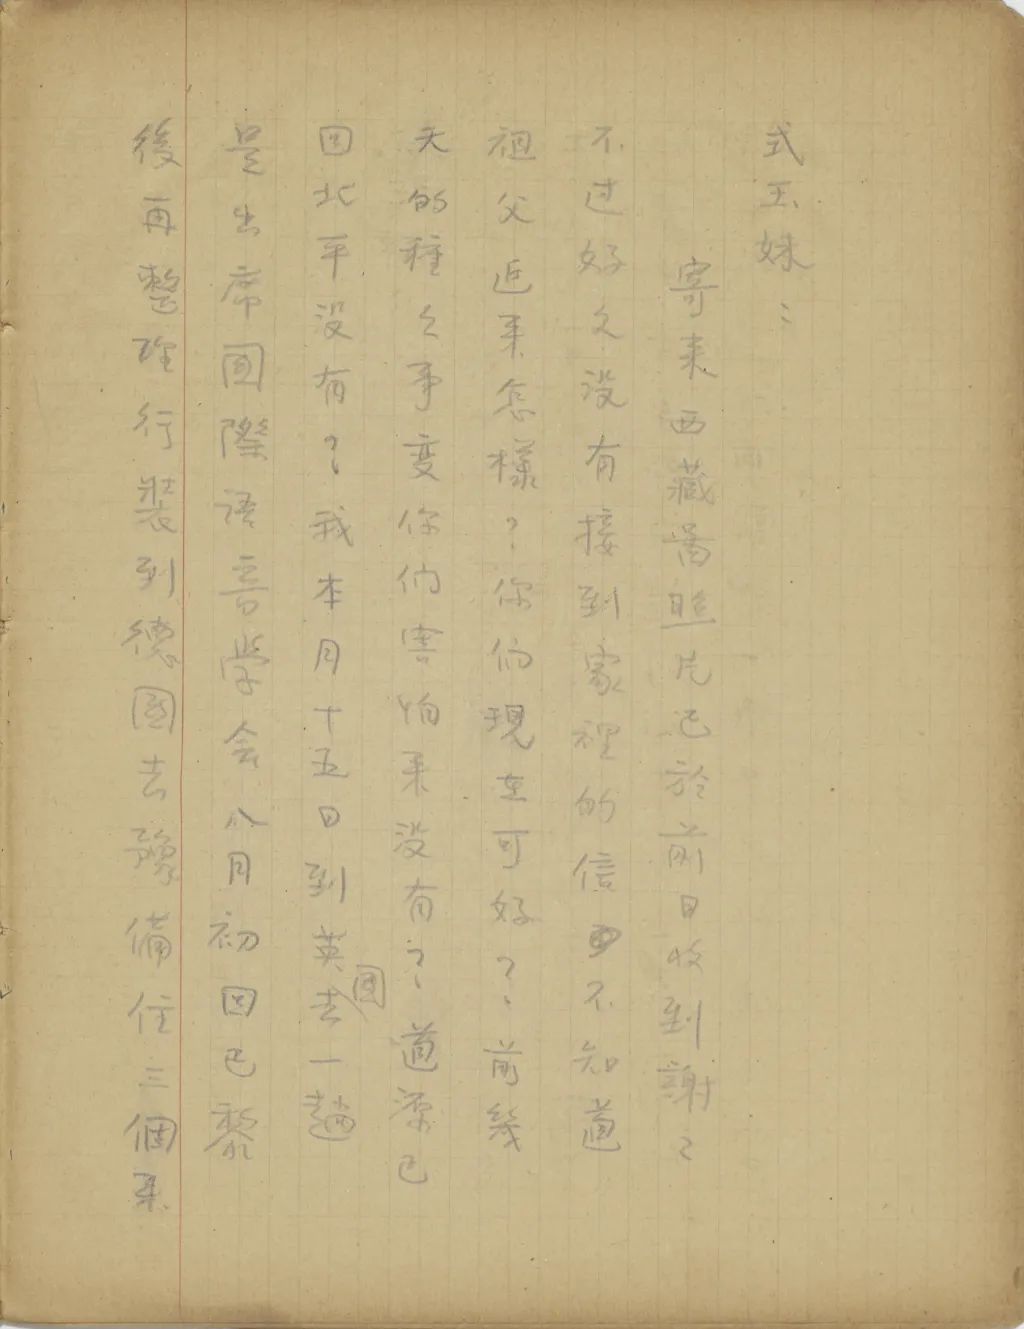 式玉妹：
寄来西藏啚照片已於前日收到謝々
不过好久没有接到家裡的信不知道
祖父近来怎樣？你们現在可好？？前幾
天的種々事变你们害怕来没有？道深已
回北平没有？我本月十五日到英國去一趟
是出席国際語言学会八月初回巴黎
後再整理行裝到德國去豫備住三個来